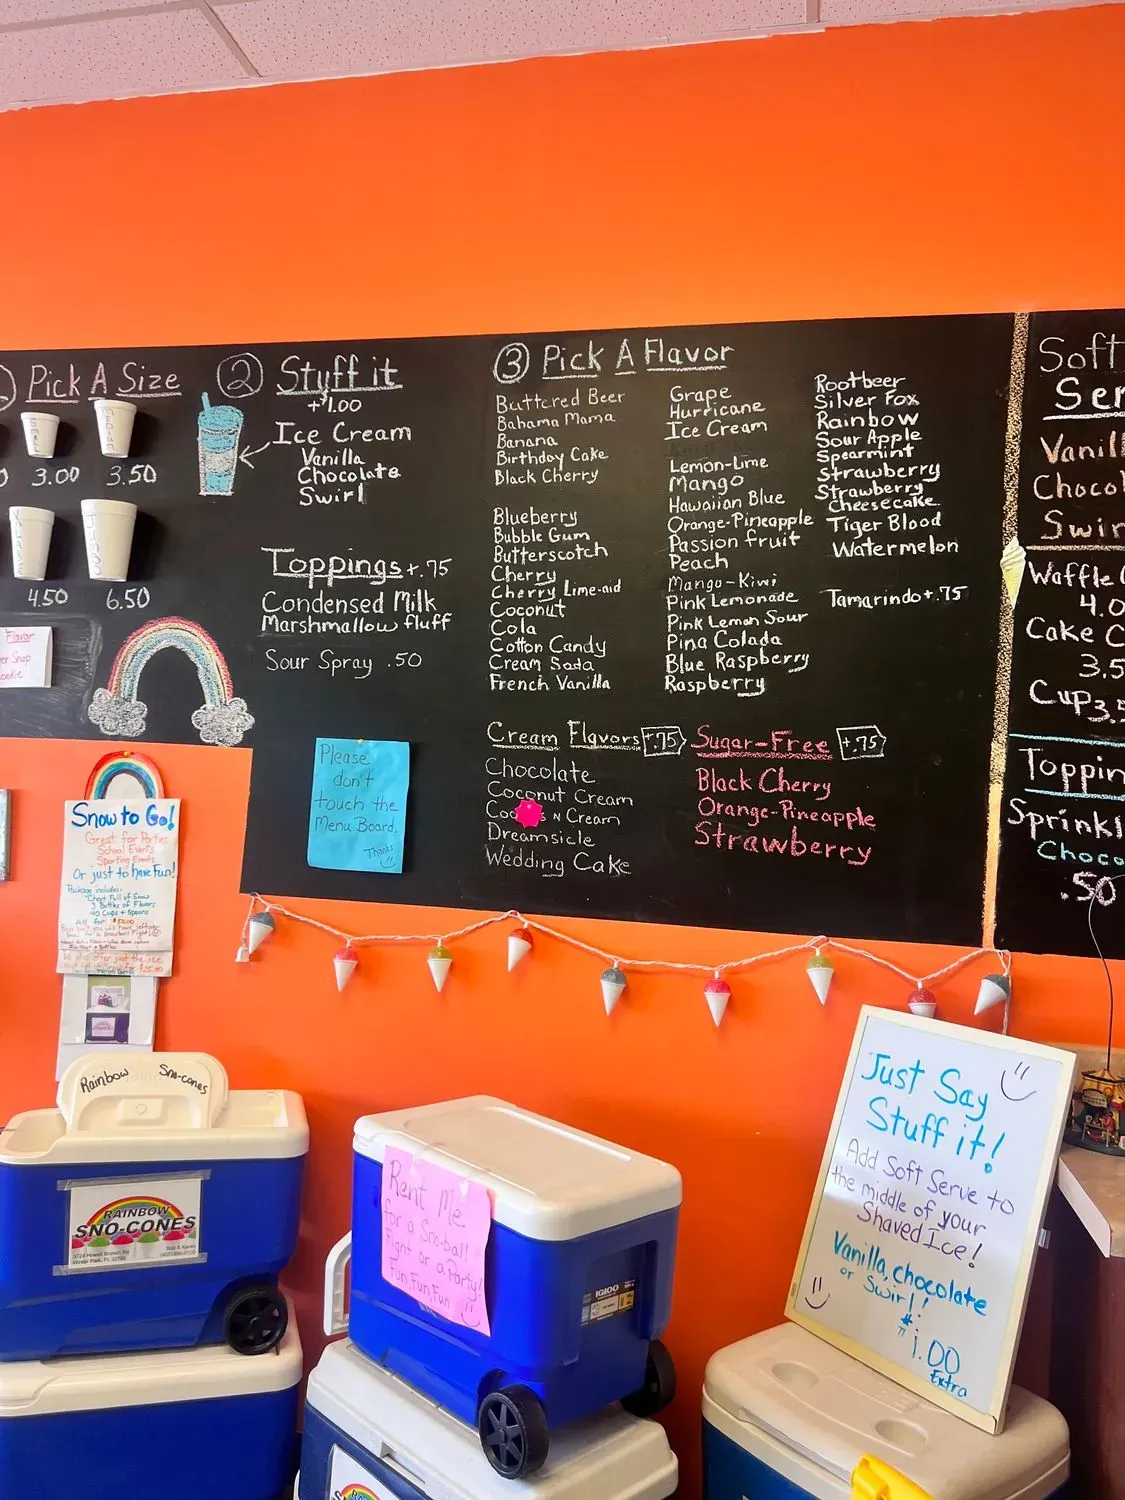 Pick A Size
3.00 3.50
4.50 6.50
Flavor
Snap
② Stuff it
+$1.00
Ice Cream
Vanilla
Chocolate
Swirl
Toppings +.75
Condensed Milk
Marshmallow fluff
Sour Spray .50
Please
don't
touch the
Menu Board.
Thanks
③ Pick A Flavor
Buttered Beer
Bahama Mama
Banana
Birthday Cake
Black Cherry
Blueberry
Bubble Gum
Butterscotch
Cherry
Cherry Lime-aid
Coconut
Cola
Cotton Candy
Cream Soda
French Vanilla
Grape
Hurricane
Ice Cream
Lemon-Lime
Mango
Hawaiian Blue
Orange-Pineapple
Passion fruit
Peach
Mango-Kiwi
Pink Lemonade
Pink Lemon Sour
Pina Colada
Blue Raspberry
Raspberry
Rootbeer
Silver Fox
Rainbow
Sour Apple
Spearmint
Strawberry
Strawberry
Cheesecake
Tiger Blood
Watermelon
Tamarindo +.75
Cream Flavors +.75
Chocolate
Coconut Cream
N Cream
Dreamsicle
Wedding Cake
Sugar-Free +.75
Black Cherry
Orange-Pineapple
Strawberry
Soft
Ser
Vanill
Chocol
Swir
Waffle C
4.0
Cake C
3.5
Cup 3.5
Toppin
Sprinkl
Choco
.50
Snow to Go!
Great for Parties
School Events
Sporting Events
Or just to have Fun!
Package includes:
Chest Full of Snow
3 Bottles of Flavors
40 Cups + Spoons
All for $50.00
Rainbow Sno-cones
RAINBOW
SNO-CONES
3724 Howell Branch Rd
Winter Park, FL 32792
Rent Me
for a Sno-ball
Fight or a Party!
Fun, Fun, Fun
IGLOO
Just Say
Stuff it!
Add Soft Serve to
the middle of your
Shaved Ice!
Vanilla, chocolate
or Swirl!
$1.00
Extra